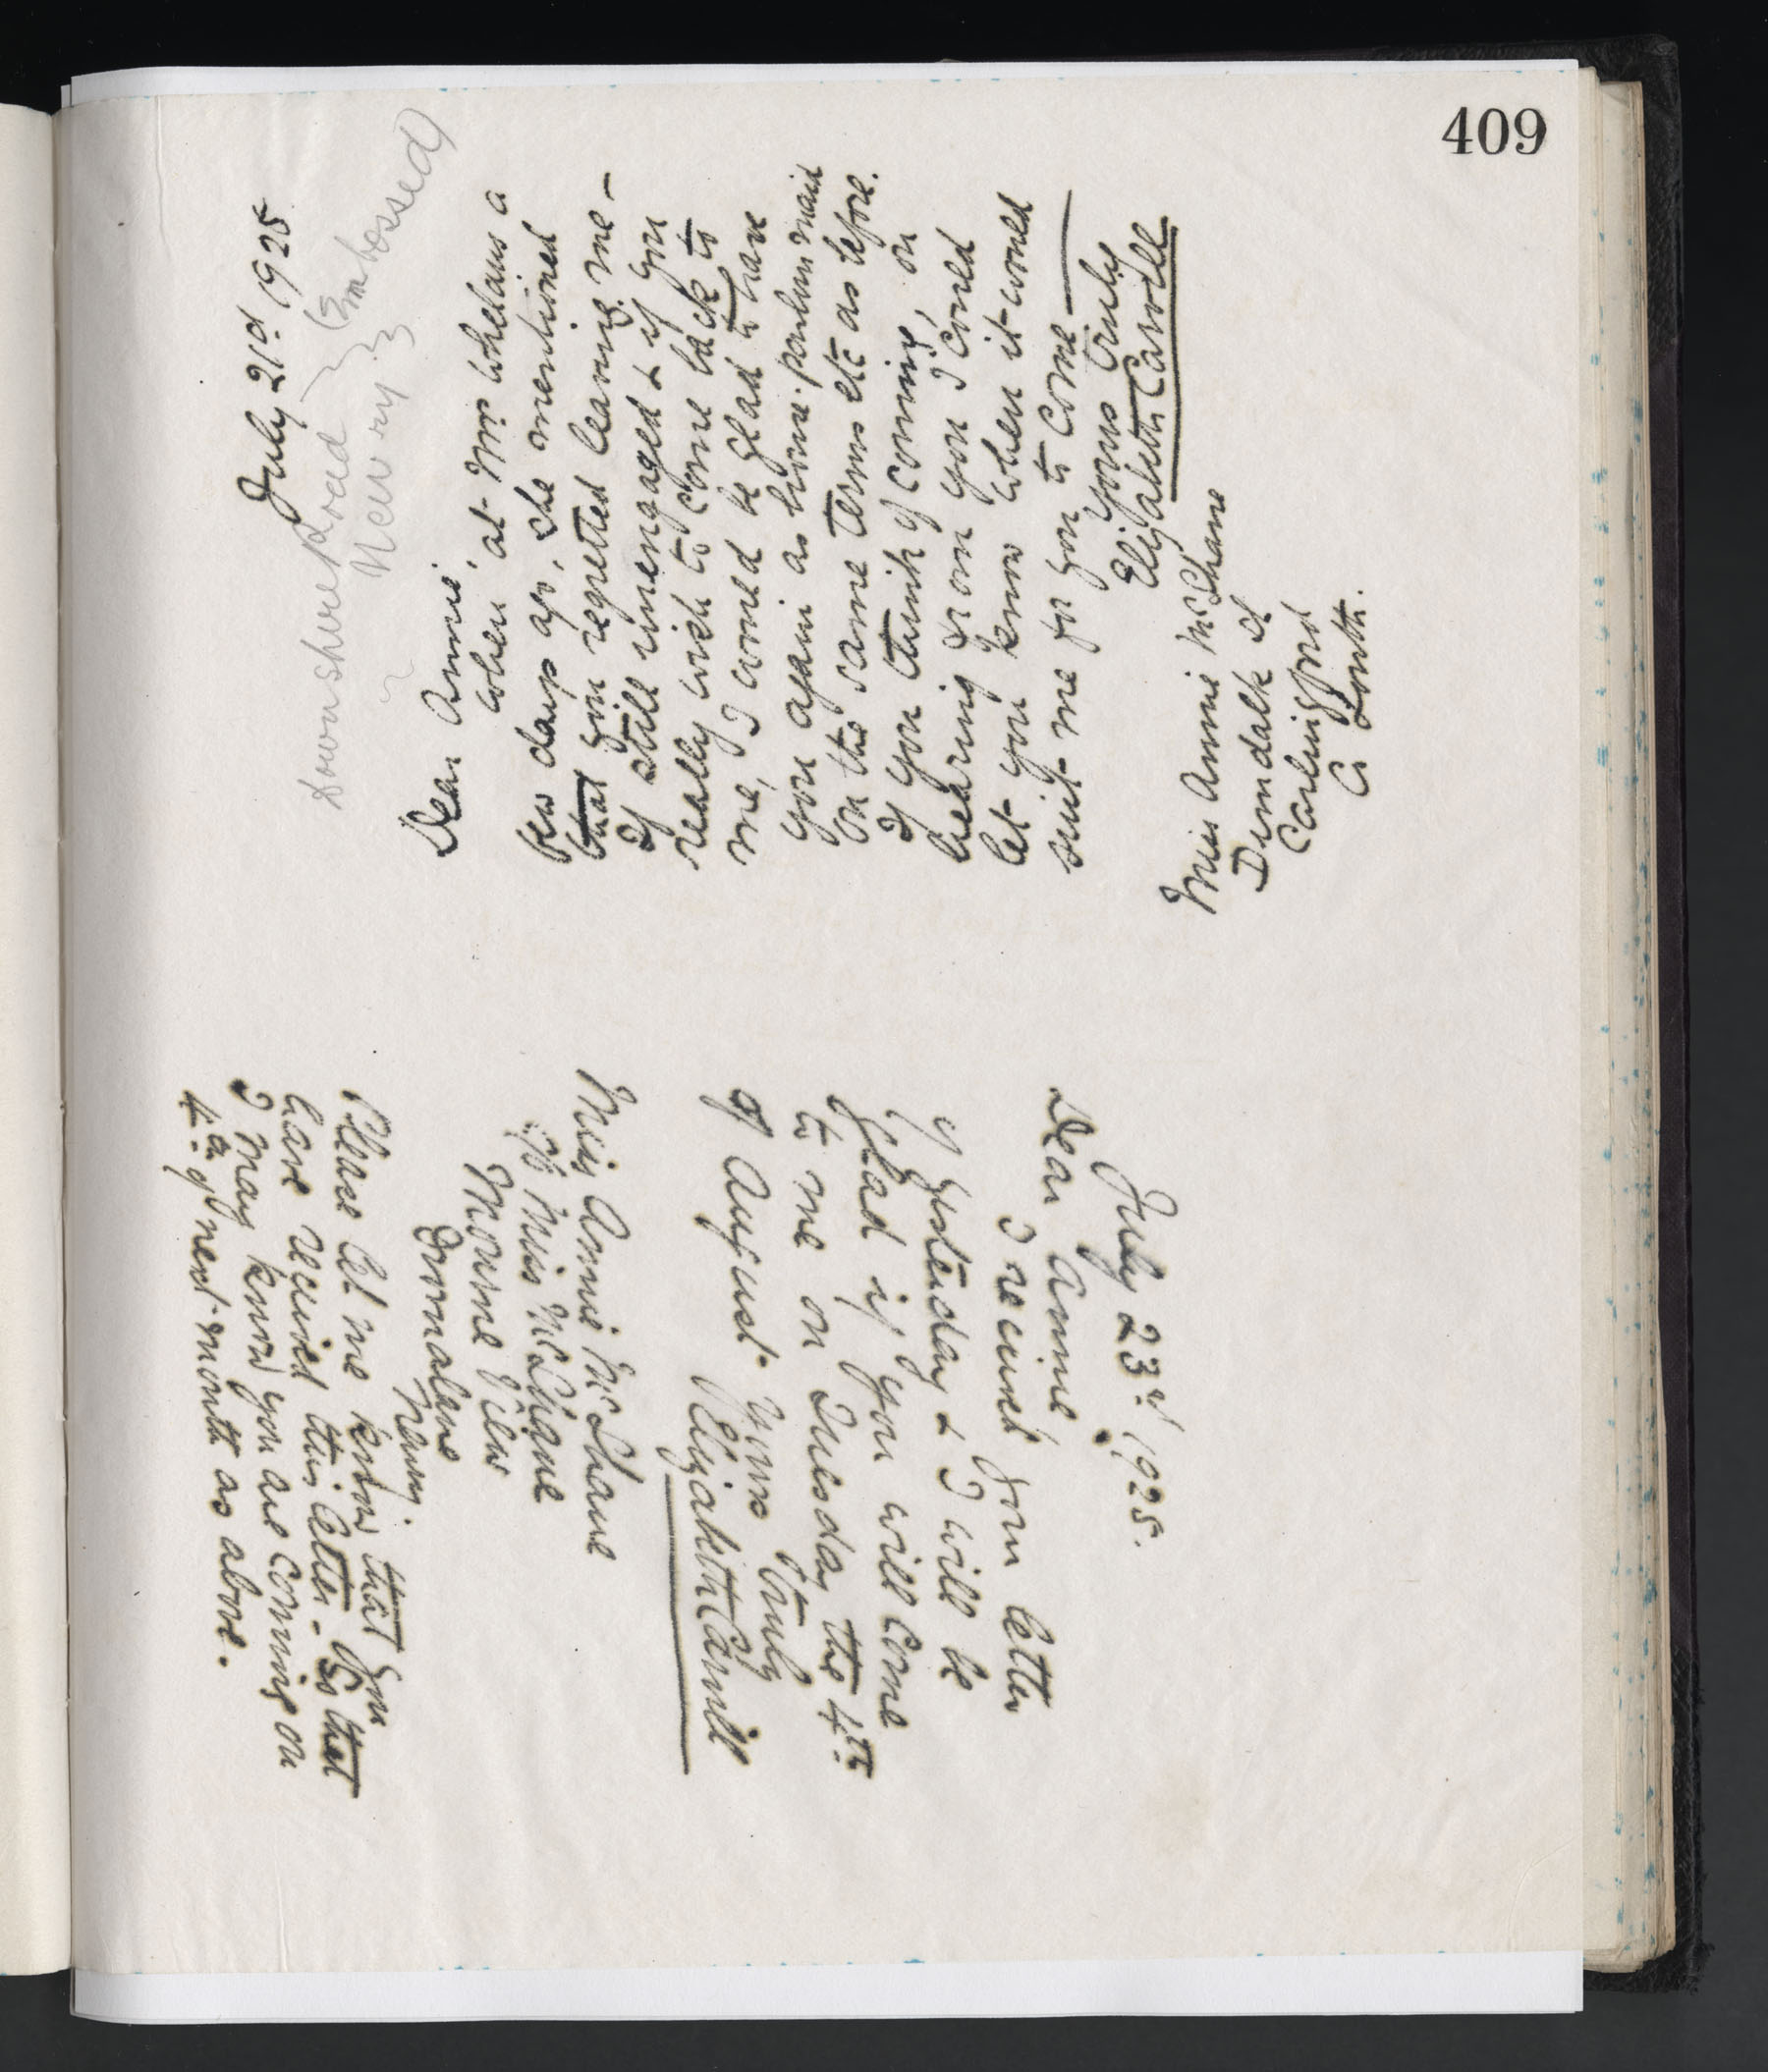 409
July 21st 1925
Downshire Road } (Embossed)
Newry }
Dear Annie,
when at Mrs Whelans a
few days ago, she mentioned
that you regretted leaving me –
If still unengaged & if you
really wish to come back to
me, I would be glad to have
you again as house-parlourmaid
on the same terms etc as before.
If you think of coming, on
hearing from you I could
let you know when it would
suit me for you to come –
Yours truly
Elizabeth Carvill
Miss Annie McShane
Dundalk St
Carlingford
Co Louth.
July 23rd 1925.
Dear Annie
I received your letter
of yesterday & I will be
glad if you will come
to me on Tuesday the 4th
of August. Yours truly
Elizabeth Carvill
Miss Annie McShane
c/o Miss McShane
Mourne View
Dornalane
Newry.
Please let me know that you
have received this letter – so that
I may know you are coming on
4th of next month as above.